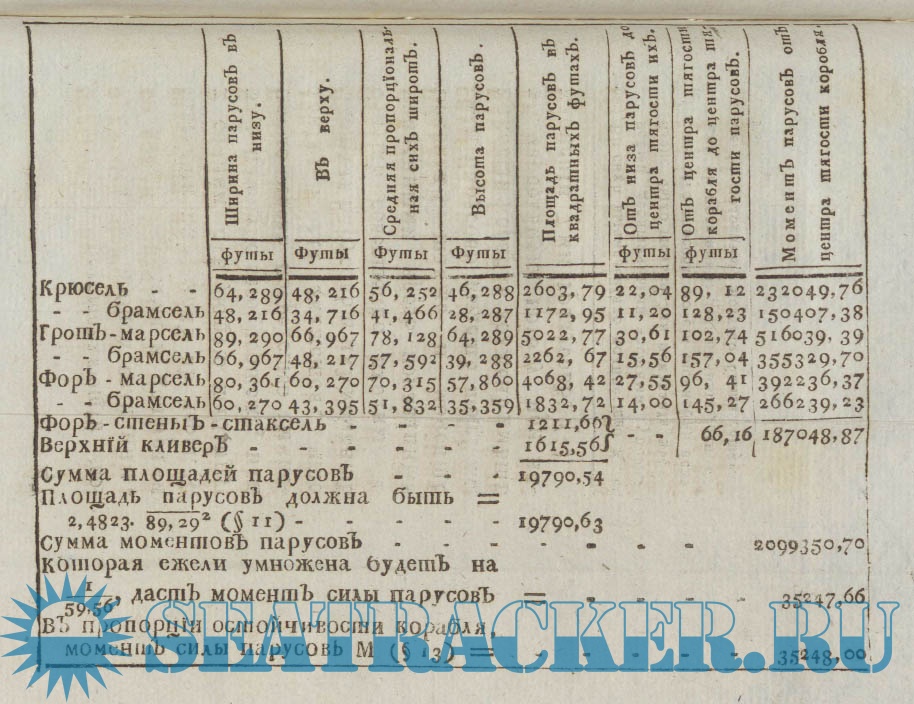 Ширина парусовъ въ низу.
Въ верху.
Средняя пропорціональная сихъ широтъ.
Высота парусовъ.
Площадь парусовъ въ квадратныхъ футахъ.
Отъ низа парусовъ до центра тягости ихъ.
Отъ центра тягости корабля до центра тягости парусовъ.
Моментъ парусовъ отъ центра тягости корабля.
футы Футы Футы Футы футы футы
Крюсель - - 64,289 48,216 56,252 46,288 2603,79 22,04 89,12 232049,76
- - брамсель 48,216 34,716 41,466 28,287 1172,95 11,20 128,23 150407,38
Гротъ-марсель 89,290 66,967 78,128 64,289 5022,77 30,61 102,74 516039,39
- - брамсель 66,967 48,217 57,592 39,288 2262,67 15,56 157,04 355329,70
Форъ-марсель 80,361 60,270 70,315 57,860 4068,42 27,55 96,41 392236,37
- - брамсель 60,270 43,395 51,832 35,359 1832,72 14,00 145,27 266239,23
Форъ-стеньъ-стаксель - - - - 1211,66
Верхній кливеръ - - - - - - 1615,56 - - 66,16 187048,87
Сумма площадей парусовъ - - - 19790,54
Площадь парусовъ должна быть =
2,4823. 89,29² (§ 11) - - - - - 19790,63
Сумма моментовъ парусовъ - - - - - - - 2099350,70
Которая ежели умножена будетъ на
1/59,56, дастъ моментъ силы парусовъ = - - - - - 35247,66
Въ пропорціи остойчивости корабля,
моментъ силы парусовъ М (§ 13) = - - - - - 35248,00
SEATRACKER.RU